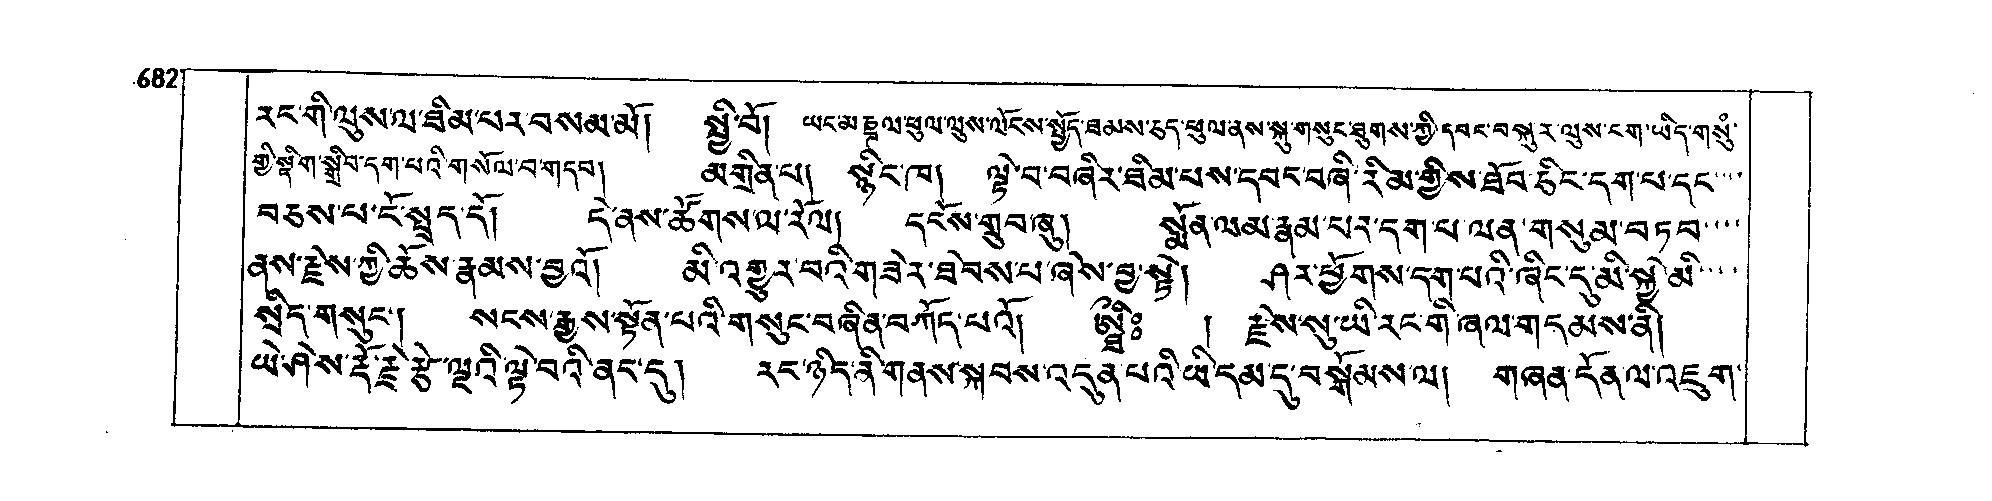 682
རང་གི་ལུས་ལ་ཐིམ་པར་བསམ་མོ། སྤྱི་བོ། ཡང་མ་ཎྜལ་ཕུལ་ལུས་ལོངས་སྤྱོད་ཐམས་ཅད་ཕུལ་ནས་སྐུ་གསུང་ཐུགས་ཀྱི་དབང་བསྐུར་ལུས་ངག་ཡིད་གསུཾ་
གྱི་སྡིག་སྒྲིབ་དག་པའི་གསོལ་བ་གདབ། མགྲིན་པ། སྙིང་ཁ། ལྟེ་བ་བཞིར་ཐིམ་པས་དབང་བཞི་རིམ་གྱིས་ཐོབ་ཅིང་དག་པ་དང་
བཅས་པ་ངོ་སྤྲད་དོ། དེ་ནས་ཚོགས་ལ་རོལ། དངོས་གྲུབ་ཞུ། སྨོན་ལམ་རྣམ་པར་དག་པ་ལན་གསུམ་བཏབ་
ནས་རྗེས་ཀྱི་ཆོས་རྣམས་བྱའོ། མི་འགྱུར་བའི་གཟེར་ཐེབས་པ་ཞེས་བྱ་སྟེ། ཤར་ཕྱོགས་དག་པའི་ཞིང་དུ་མི་སྐྱེ་མི་
སྲིད་གསུང་། སངས་རྒྱས་སྟོན་པའི་གསུང་བཞིན་བཀོད་པའོ། ། རྗེས་སུ་ཡི་རང་གི་ཞལ་གདམས་ནི།
ཡེ་ཤེས་རྡོ་རྗེ་རྩེ་ལྔའི་ལྟེ་བའི་ནང་དུ། རང་ཉིད་ནི་གནས་སྐབས་འདུན་པའི་ཡིདམ་དུ་བསྒོམས་ལ། གཞན་དོན་ལ་འཇུག་